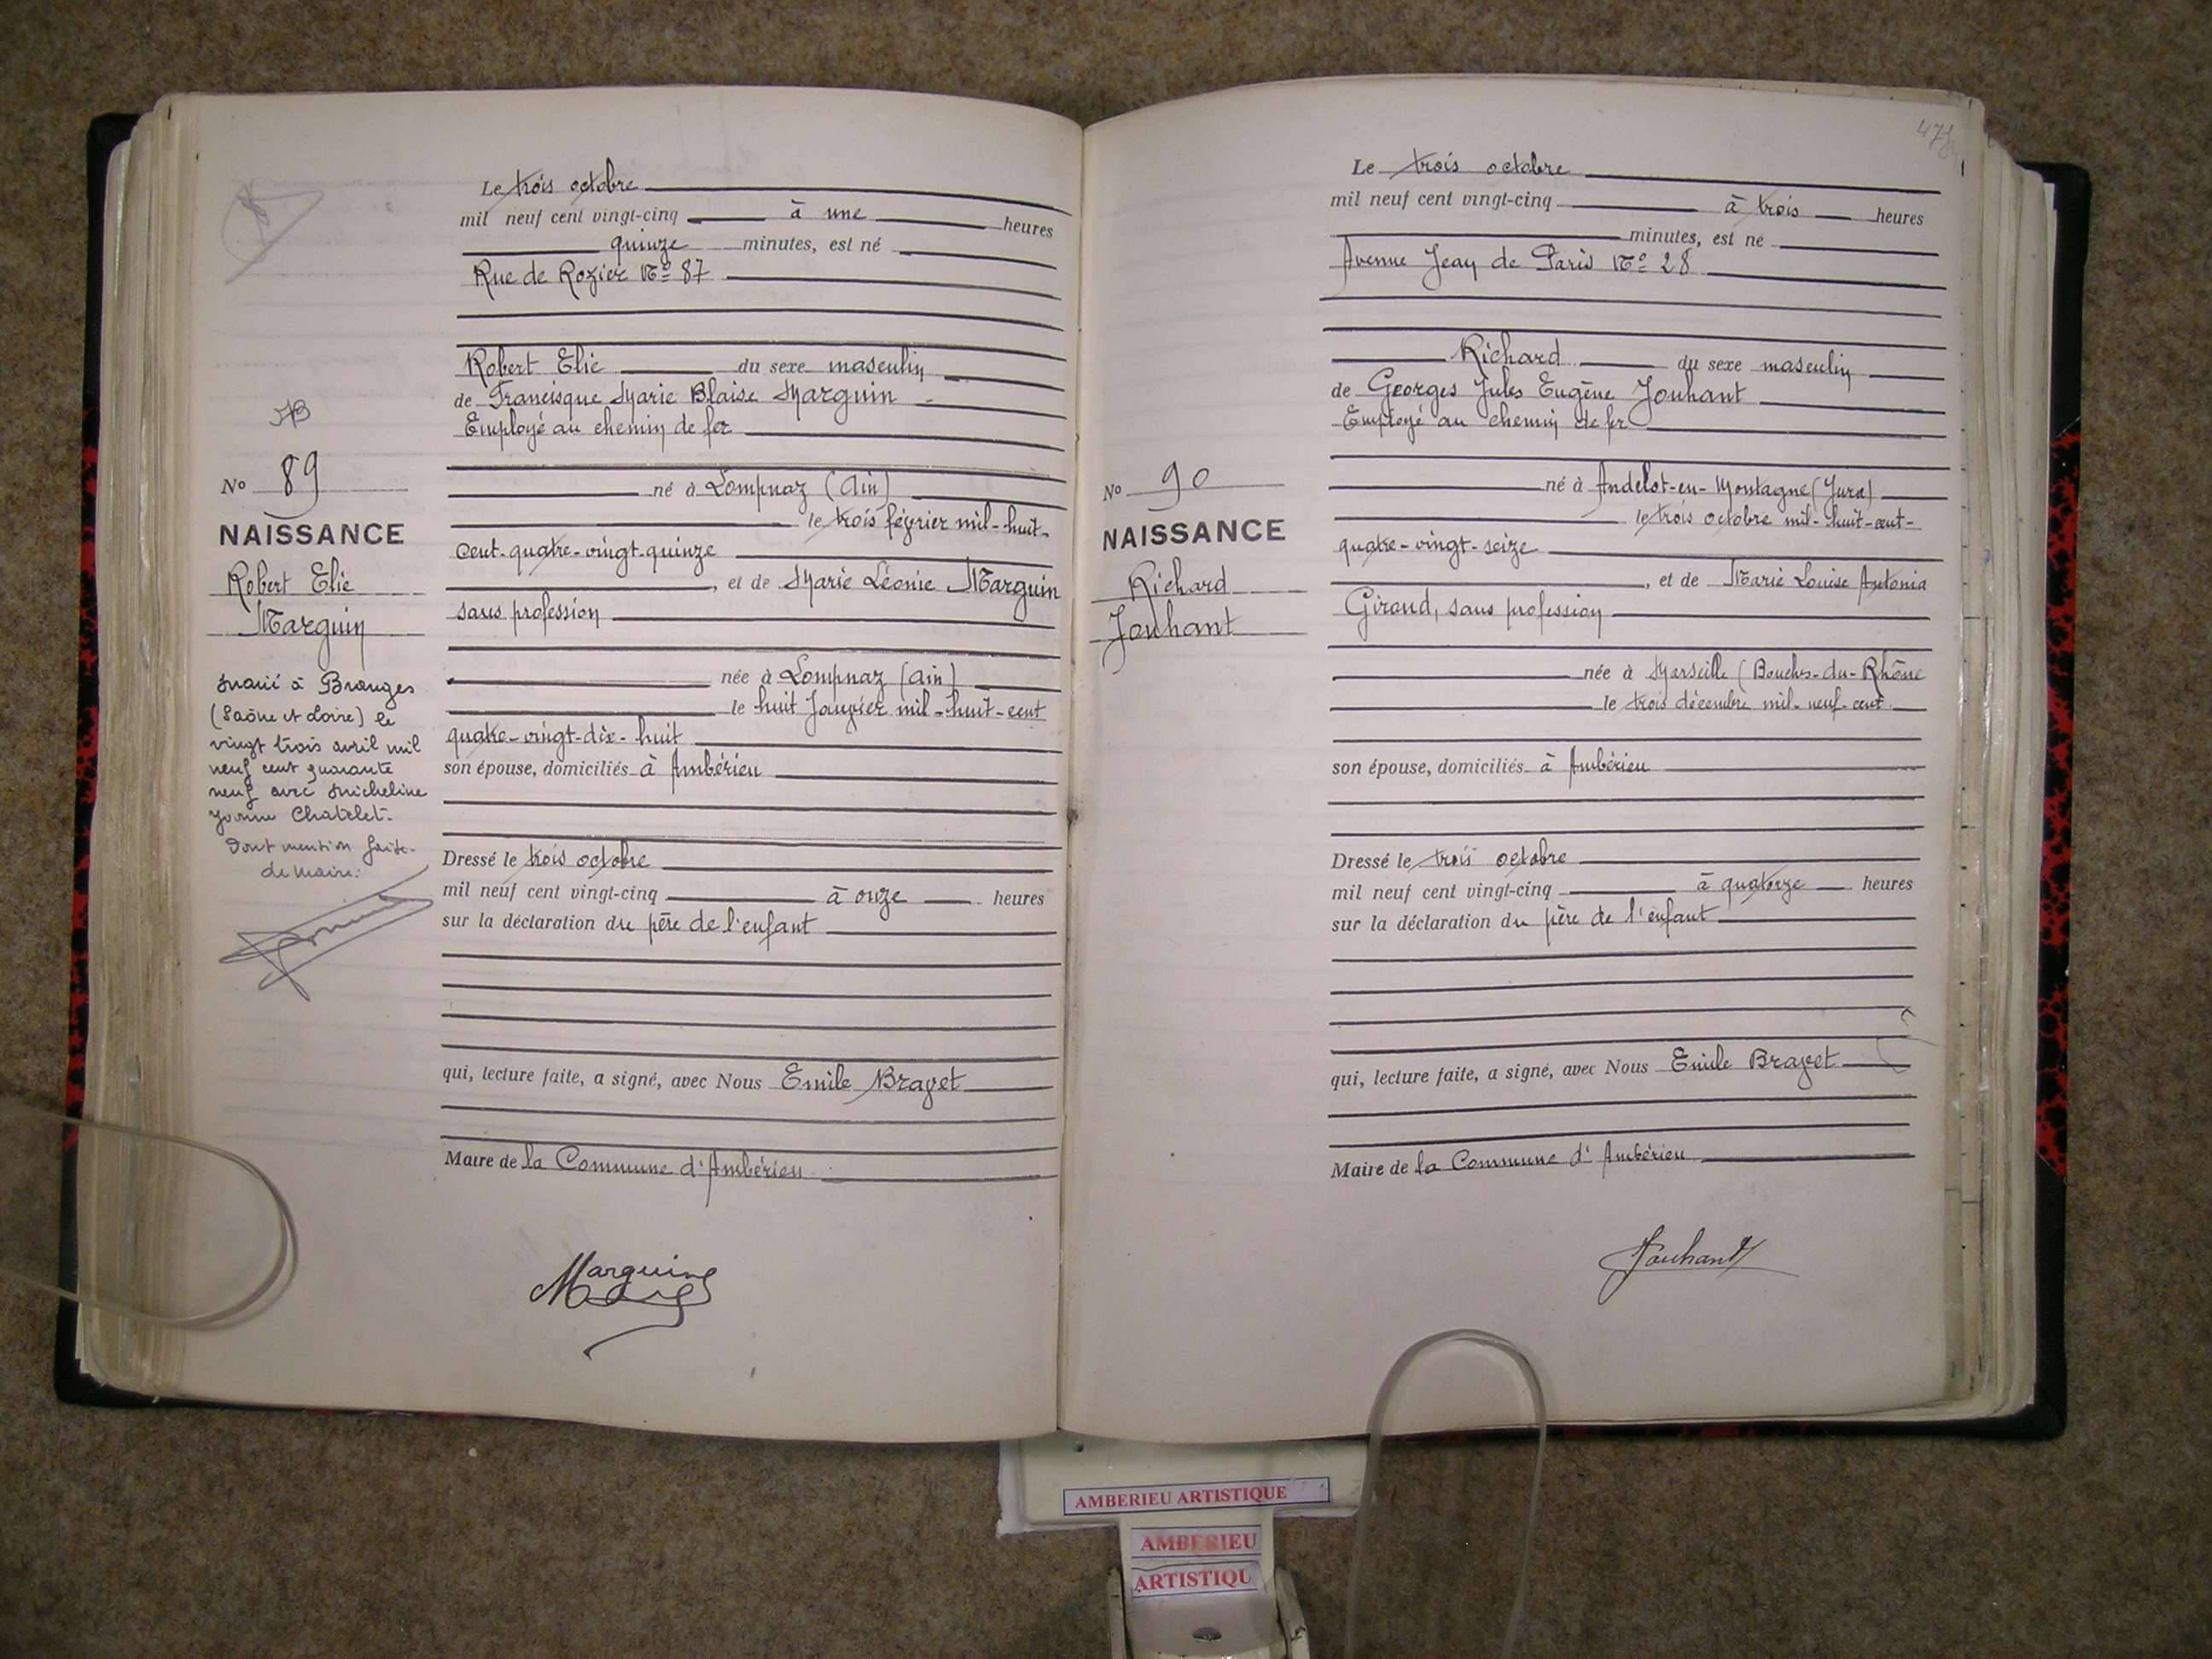 Le trois octobre
mil neuf cent vingt-cinq à une heures
quinze minutes, est né
Rue de Rozier No 87
Robert Elie du sexe masculin
de Francisque Marie Blaise Marguin
Employé au chemin de fer
né à Lompnaz (Ain)
le trois février mil-huit-
cent-quatre-vingt-quinze
, et de Marie Léonie Marguin
sans profession
née à Lompnaz (Ain)
le huit Janvier mil-huit-cent
quatre-vingt-dix-huit
son épouse, domiciliés à Ambérieu
Dressé le trois octobre
mil neuf cent vingt-cinq à onze heures
sur la déclaration du père de l'enfant
qui, lecture faite, a signé, avec Nous Emile Bravet
Maire de la Commune d'Ambérieu
Marguin
No 89
NAISSANCE
Robert Elie
Marguin
Marié à Branges
(Saône et Loire) le
vingt trois avril mil
neuf cent quarante
neuf avec Micheline
Yvonne Chatelet.
Dont mention faite.
Le Maire:
Le trois octobre
mil neuf cent vingt-cinq à trois heures
minutes, est né
Avenue Jean de Paris No 28
Richard du sexe masculin
de Georges Jules Eugène Jouhant
Employé au chemin de fer
né à Andelot-en-Montagne (Jura)
le trois octobre mil-huit-cent-
quatre-vingt-seize
, et de Marie Louise Antonia
Giroud, sans profession
née à Marseille (Bouches-du-Rhône
le trois décembre mil-neuf-cent
son épouse, domiciliés à Ambérieu
Dressé le trois octobre
mil neuf cent vingt-cinq à quatorze heures
sur la déclaration du père de l'enfant
qui, lecture faite, a signé, avec Nous Emile Bravet
Maire de la Commune d'Ambérieu
Jouhant
No 90
NAISSANCE
Richard
Jouhant
AMBERIEU ARTISTIQUE
AMBERIEU
ARTISTIQU